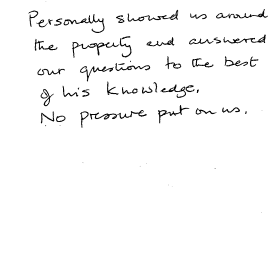 Personally showed us around
the property and answered
our questions to the best
of his knowledge.
No pressure put on us.